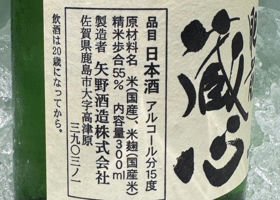 蔵心
品目 日本酒 アルコール分15度
原材料名 米(国産)、米麹(国産米)
精米歩合55% 内容量300ml
製造者 矢野酒造株式会社
佐賀県鹿島市大字高津原
三九〇三ノ一
飲酒は20歳になってから。